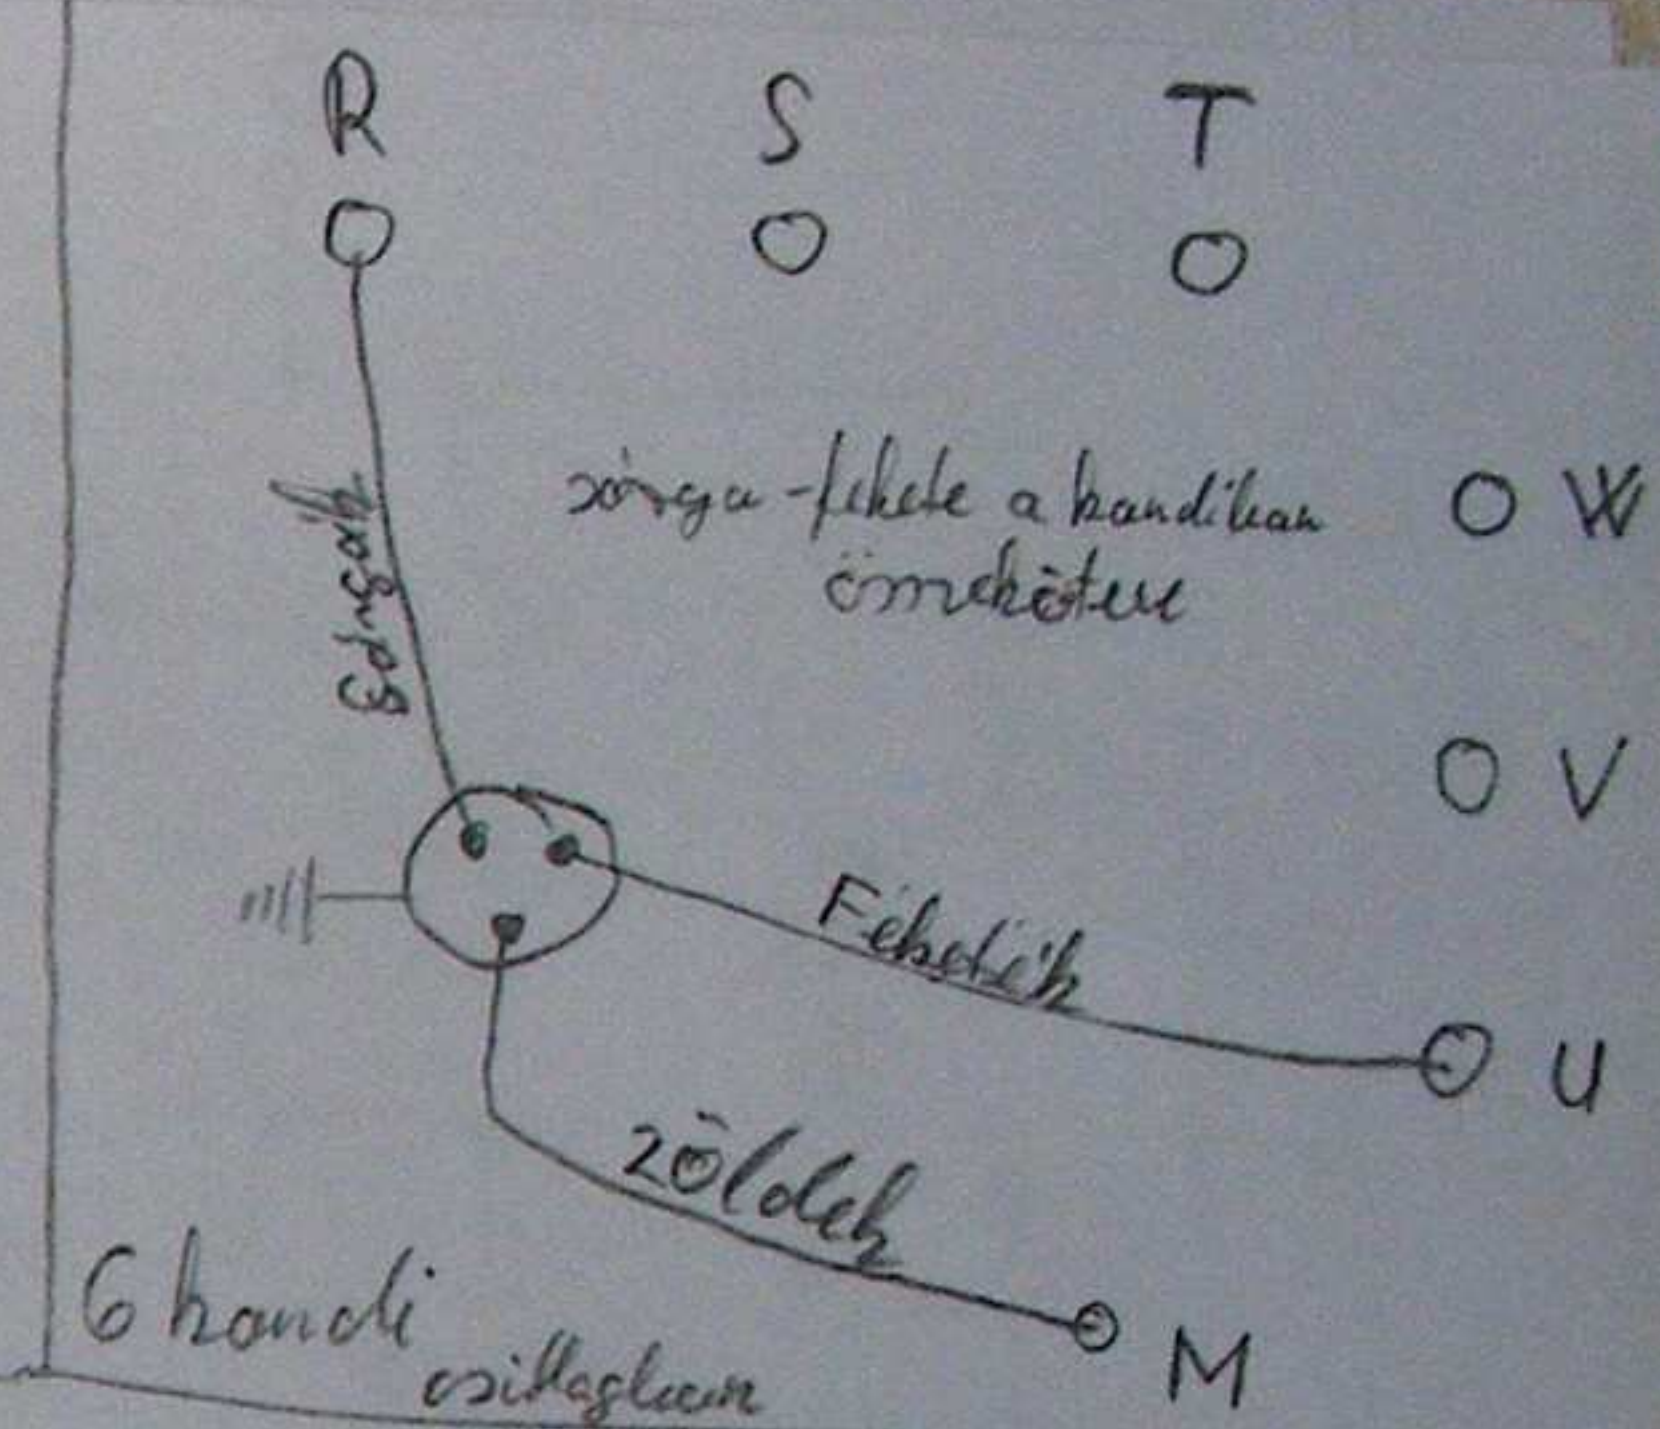 R S T
sárga-fekete a kandikban
összekötve
W
Sárgák
V
Feketék
U
zöldek
6 kandi
csillagban
M